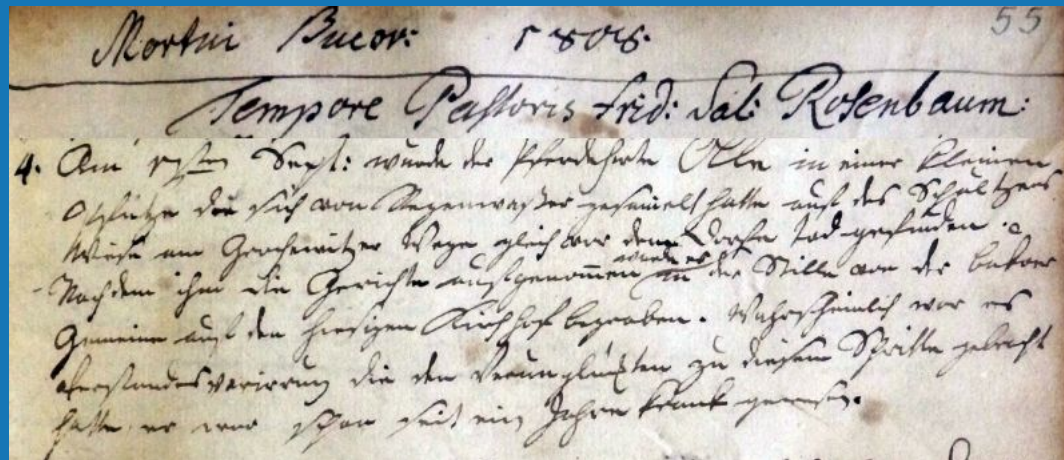 Mortui Bucov: 1808.
55
Tempore Pastoris Frid: Sal: Rosenbaum:
4. Am Sept: wurde der Pferdehirte Olle in einer kleinen
Pfütze die sich von Regenwaßer gesamelt hatte auf des Schultzens
Wiese am Grochewitzer Wege gleich vor dem Dorfe tod gefunden.
wurde er
Nachdem ihn die Gerichte aufgenommen in der Stille von der
Gemeine auf den hiesigen Kirchhof begraben. Wahrscheinlich war es
Verstandesverirrung die den Verunglückten zu diesem Schritte gebracht
hatte er war schon seit ein Jahre krank gewesen.